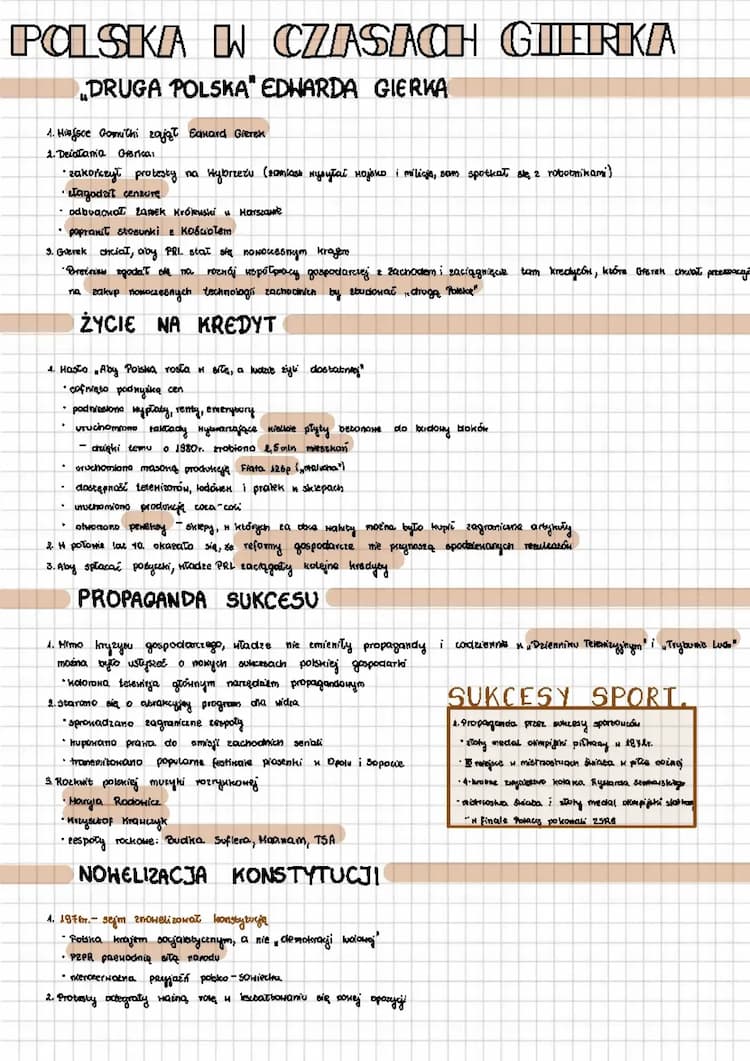 POLSKA W CZASACH GIERKA
„DRUGA POLSKA" EDWARDA GIERKA
1. Miejsce Gomułki zajął Edward Gierek
2. Działania Gierka:
• zakończył protesty na Wybrzeżu (zamiast wysyłać wojsko i milicję, sam spotkał się z robotnikami)
• złagodził cenzurę
• odbudował Zamek Królewski w Warszawie
• poprawił stosunki z Kościołem
3. Gierek chciał, aby PRL stał się nowoczesnym krajem
• Breżniew zgodził się na rozwój współpracy gospodarczej z Zachodem i zaciągnięcie tam kredytów, które Gierek chciał
na zakup nowoczesnych technologii zachodnich by zbudować „drugą Polskę"
ŻYCIE NA KREDYT
1. Hasło „Aby Polska rosła w siłę, a ludzie żyli dostatniej"
• cofnięto podwyżkę cen
• podniesiono wypłaty, renty, emerytury
• uruchomiono zakłady wytwarzające wielkie płyty betonowe do budowy bloków
- dzięki temu o 1980r. zrobiono 2,5 mln mieszkań
• uruchomiono masową produkcję Fiata 126p („malucha")
• dostępność telewizorów, lodówek i pralek w sklepach
• uruchomiono produkcję coca-coli
• otworzono peweksy - sklepy, w których za obce waluty można było kupić zagraniczne artykuły
2. W połowie lat 70. okazało się, że reformy gospodarcze nie przynoszą spodziewanych rezultatów
3. Aby spłacać pożyczki, władze PRL zaciągały kolejne kredyty
PROPAGANDA SUKCESU
1. Mimo kryzysu gospodarczego, władze nie zmieniły propagandy i codziennie w „Dzienniku Telewizyjnym" i „Trybunie Ludu"
można było usłyszeć o nowych sukcesach polskiej gospodarki
• kolorowa telewizja głównym narzędziem propagandowym
2. Starano się o atrakcyjny program dla widza
• sprowadzano zagraniczne zespoły
• kupowano prawa do emisji zachodnich seriali
• transmitowano popularne festiwale piosenki w Opolu i Sopocie
3. Rozkwit polskiej muzyki rozrywkowej
• Maryla Rodowicz
• Krzysztof Krawczyk
• zespoły rockowe: Budka Suflera, Maanam, TSA
SUKCESY SPORT.
1. Propaganda przez sukcesy sportowców
• złoty medal olimpijski piłkarzy w 1972r.
• III miejsce w mistrzostwach świata w piłce nożnej
• 4-krotne zwycięstwo kolarza Ryszarda Szurkowskiego
• mistrzostwo świata i złoty medal olimpijski siatkarzy
- w finale Polacy pokonali ZSRR
NOWELIZACJA KONSTYTUCJI
1. 1976r. - sejm znowelizował konstytucję
• Polska krajem socjalistycznym, a nie „demokracji ludowej"
• PZPR przewodnią siłą narodu
• nierozerwalna przyjaźń polsko-sowiecka
2. Protesty odegrały ważną rolę w kształtowaniu się nowej opozycji